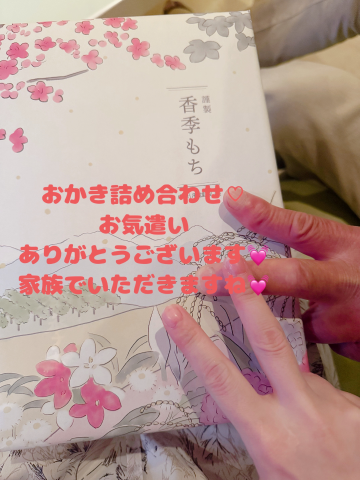 謹製
香季もち
おかき詰め合わせ♡
お気遣い
ありがとうございます💓
家族でいただきますね💓